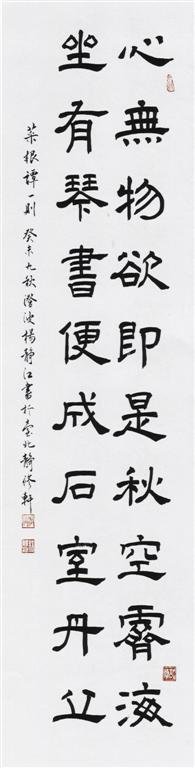 心無物欲即是秋空霽海
坐有琴書便成石室丹丘
菜根譚一則癸未九秋澄波楊靜江書於臺北靜修軒